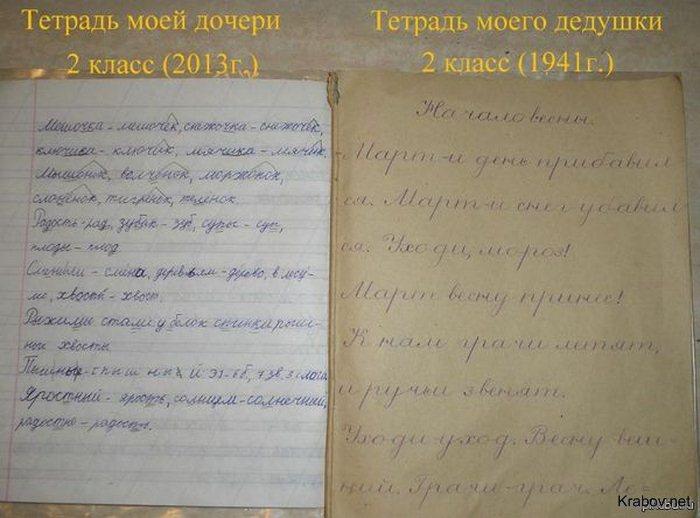 Тетрадь моей дочери
2 класс (2013г.)
Тетрадь моего дедушки
2 класс (1941г.)
Мешочка – мешочек, снежочка – снежочек,
ключика – ключик, мячика – мячик.
Мышонок, волчонок, моржонок,
слонёнок, тигрёнок, телёнок.
Радость – рад, зубик – зуб, супы – суп,
плоды – плод.
Сменили – смена, деревья – дерево, в лесу –
хвосты – хвост.
Рыжими стали у белок спинки
хвосты
Яростный – ярость, солнцем – солнечный,
радостно – радость.
Начало весны.
Март-и день прибавил
ся. Март-и снег убавил
ся. Уходи, мороз!
Март весну принес!
К нам грачи летят,
и ручьи звенят.
Уходи-уход. Весну-весен-
ний. Грачи-грач. Ле-
Krabov.net